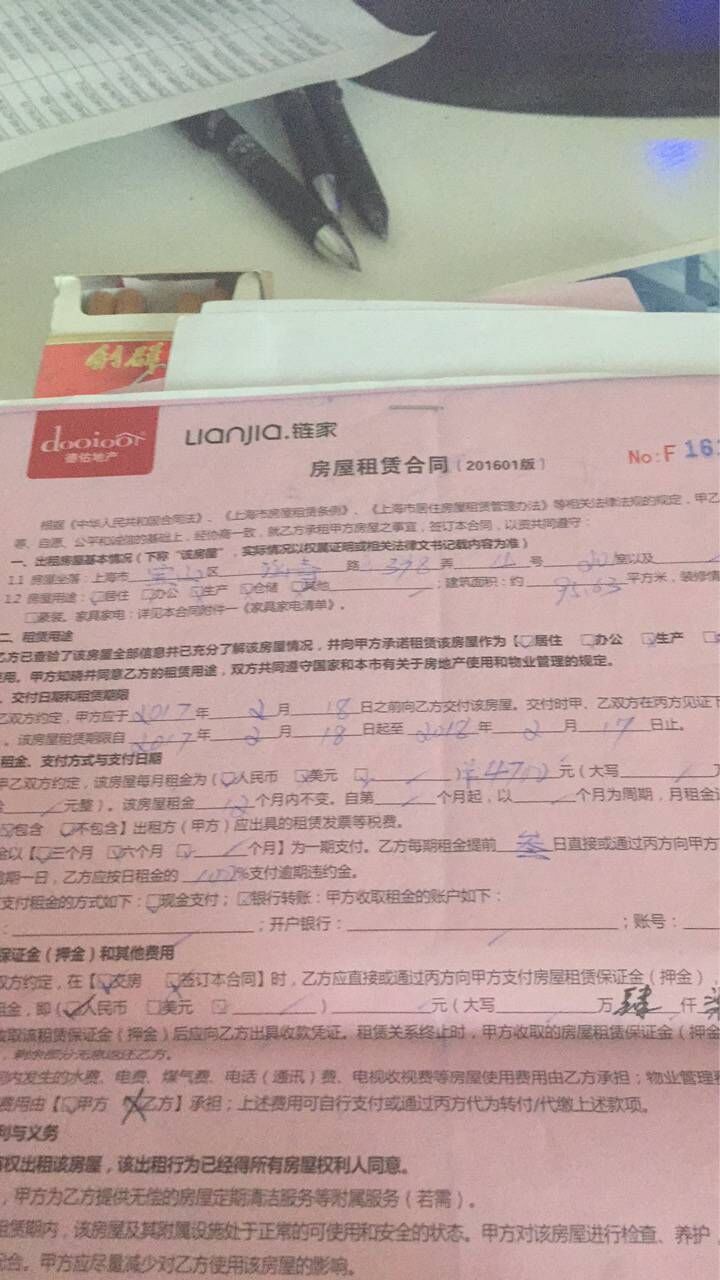 dooioor
德佑地产
LIANJIA.链家
房屋租赁合同(201601版)
No:F 161
根据《中华人民共和国合同法》、《上海市房屋租赁条例》、《上海市居住房屋租赁管理办法》等相关法律法规的规定，甲乙
等、自愿、公平和诚信的基础上，经协商一致，就乙方承租甲方房屋之事宜，签订本合同，以资共同遵守：
一、出租房屋基本情况（下称“该房屋”，实际情况以权属证明或相关法律文书记载内容为准）
1.1 房屋坐落：上海市宝山区 路398弄 号 室以及
1.2 房屋用途：□居住 □办公 □生产 □仓储 □其他 ；建筑面积：约95.63平方米，装修情
□豪装。家具家电：详见本合同附件一《家具家电清单》。
二、租赁用途
乙方已查验了该房屋全部信息并已充分了解该房屋情况，并向甲方承诺租赁该房屋作为【□居住 □办公 □生产
使用。甲方知晓并同意乙方的租赁用途，双方共同遵守国家和本市有关于房地产使用和物业管理的规定。
、交付日期和租赁期限
乙双方约定，甲方应于2017年2月18日之前向乙方交付该房屋。交付时甲、乙双方在丙方见证下
。该房屋租赁期限自2017年2月18日起至2018年2月17日止。
租金、支付方式与支付日期
甲乙双方约定，该房屋每月租金为（□人民币 □美元 □ ）4700元（大写 万
元整）。该房屋租金12个月内不变。自第 个月起，以 个月为周期，月租金
□包含 □不包含】出租方（甲方）应出具的租赁发票等税费。
金以【□三个月 □六个月 □ 个月】为一期支付。乙方每期租金提前叁日直接或通过丙方向甲方
逾期一日，乙方应按日租金的 %支付逾期违约金。
支付租金的方式如下：□现金支付；□银行转账：甲方收取租金的账户如下：
： ；开户银行： ；账号：
保证金（押金）和其他费用
双方约定，在【□交房 □签订本合同】时，乙方应直接或通过丙方向甲方支付房屋租赁保证金（押金），
租金，即（□人民币 □美元 □ ） 元（大写 万肆仟柒
收取该租赁保证金（押金）后应向乙方出具收款凭证。租赁关系终止时，甲方收取的房屋租赁保证金（押金
，剩余部分无息返还乙方。
间内发生的水费、电费、煤气费、电话（通讯）费、电视收视费等房屋使用费用由乙方承担；物业管理
费用由【□甲方 □乙方】承担；上述费用可自行支付或通过丙方代为转付/代缴上述款项。
利与义务
有权出租该房屋，该出租行为已经得所有房屋权利人同意。
，甲方为乙方提供无偿的房屋定期清洁服务等附属服务（若需）。
租赁期内，该房屋及其附属设施处于正常的可使用和安全的状态。甲方对该房屋进行检查、养护，
配合。甲方应尽量减少对乙方使用该房屋的影响。